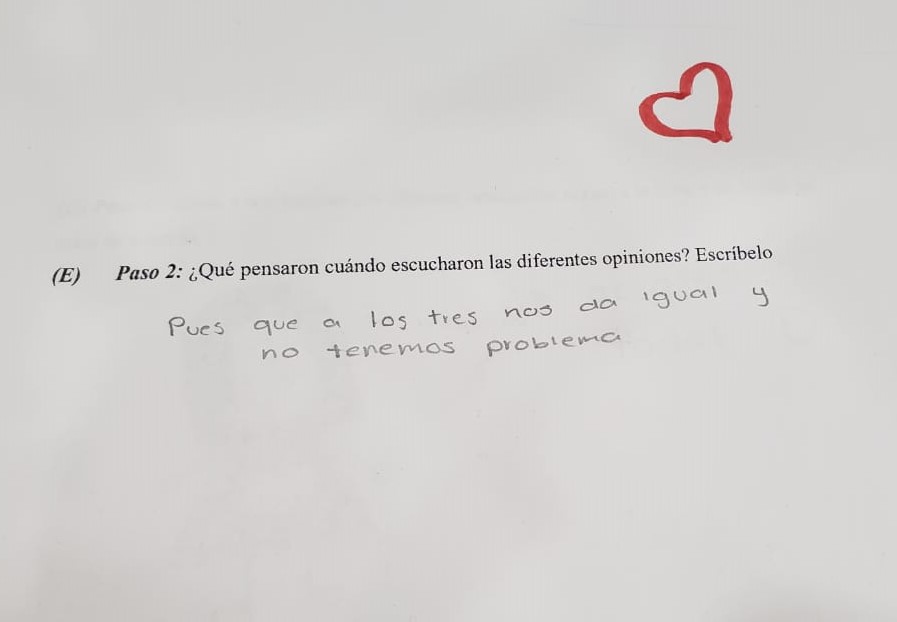 (E) Paso 2: ¿Qué pensaron cuándo escucharon las diferentes opiniones? Escríbelo
Pues que a los tres nos da igual y
no tenemos problema